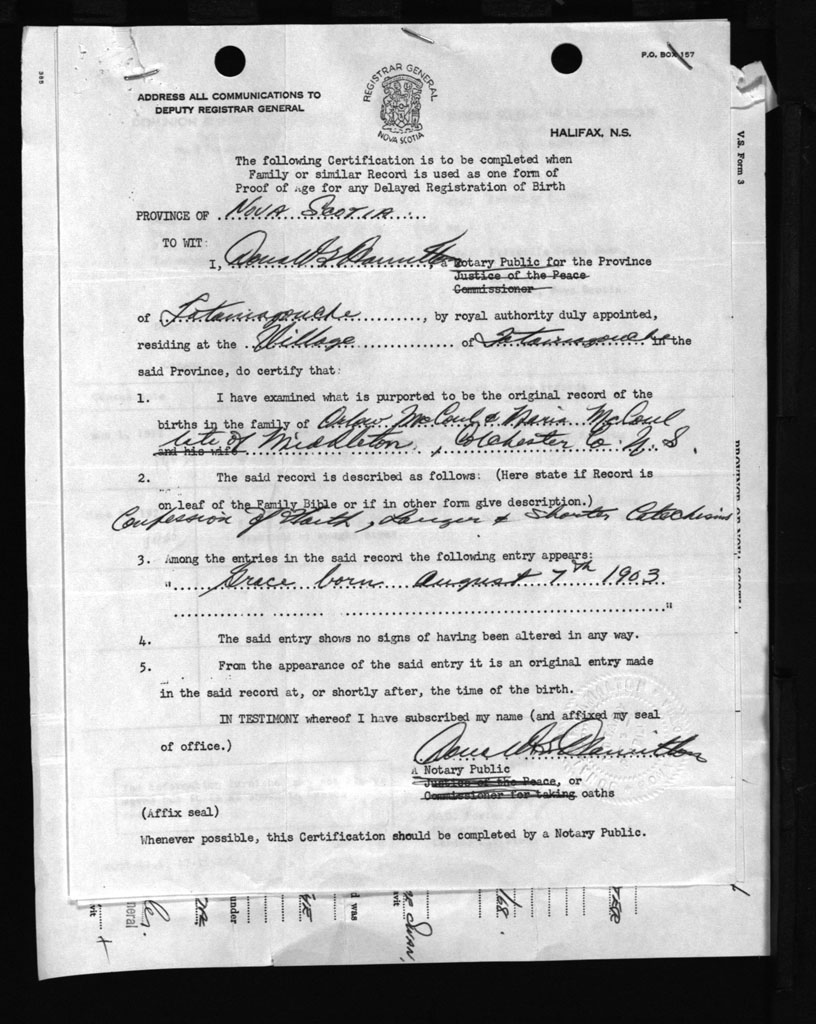 P.O. BOX 157
385
ADDRESS ALL COMMUNICATIONS TO
DEPUTY REGISTRAR GENERAL
REGISTRAR GENERAL
NOVA SCOTIA
HALIFAX, N.S.
V.S. Form 3
The following Certification is to be completed when
Family or similar Record is used as one form of
Proof of Age for any Delayed Registration of Birth
PROVINCE OF Nova Scotia
TO WIT:
I, Donald G Hamilton, a Notary Public for the Province
Justice of the Peace
Commissioner
of Tatamagouche, by royal authority duly appointed,
residing at the Village of Tatamagouche in the
said Province, do certify that:
1. I have examined what is purported to be the original record of the
births in the family of McCoul & Maria McCoul
and his wife late of Middleton, Colchester Co. N.S.
2. The said record is described as follows: (Here state if Record is
on leaf of the Family Bible or if in other form give description.)
Confession of Faith, Larger & Shorter Catechisms
3. Among the entries in the said record the following entry appears:
" Grace born August 7th 1903
"
4. The said entry shows no signs of having been altered in any way.
5. From the appearance of the said entry it is an original entry made
in the said record at, or shortly after, the time of the birth.
IN TESTIMONY whereof I have subscribed my name (and affixed my seal
of office.)
Donald G Hamilton
A Notary Public
Justice of the Peace, or
Commissioner for taking oaths
(Affix seal)
Whenever possible, this Certification should be completed by a Notary Public.
neral
vit
under
d was
avit
SWAN,
168